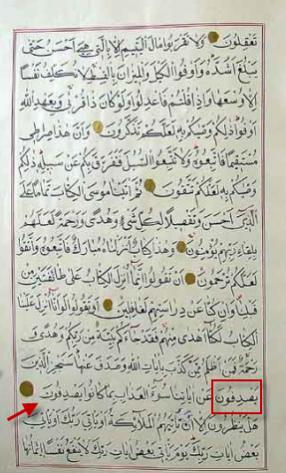 تعقلون ولا تقربوا مال اليتيم الا بالتي هي احسن حتى
يبلغ اشده واوفوا الكيل والميزان بالقسط لا نكلف نفسا
الا وسعها واذا قلتم فاعدلوا ولو كان ذا قربى وبعهد الله
اوفوا ذلكم وصيكم به لعلكم تذكرون وان هذا صراطي
مستقيما فاتبعوه ولا تتبعوا السبل فتفرق بكم عن سبيله ذلكم
وصيكم به لعلكم تتقون ثم اتينا موسى الكتاب تماما على
الذي احسن وتفصيلا لكل شيء وهدى ورحمة لعلهم
بلقاء ربهم يؤمنون وهذا كتاب انزلناه مبارك فاتبعوه واتقوا
لعلكم ترحمون ان تقولوا انما انزل الكتاب على طائفتين من
قبلنا وان كنا عن دراستهم لغافلين او تقولوا لو انا انزل علينا
الكتاب لكنا اهدى منهم فقد جاءكم بينة من ربكم وهدى و
رحمة فمن اظلم ممن كذب بايات الله وصدف عنها سنجزي الذين
يصدفون عن اياتنا سوء العذاب بما كانوا يصدفون
هل ينظرون الا ان تاتيهم الملائكة او ياتي ربك او ياتي
بعض ايات ربك يوم ياتي بعض ايات ربك لا ينفع نفسا ايمانها